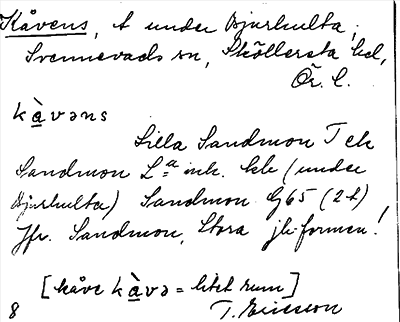 Kåvens, t under Bjurhulta,
Svennevads sn, Sköllersta hd,
Ör. l.
kàvəns
Lilla Sandmon T ek
Sandmon La ink. kb (under
Bjurhulta) Sandmon G65 (2 t)
Jfr. Sandmon, Stora jb-formen!
[kåve kàvə = litet rum]
8 T. Ericsson